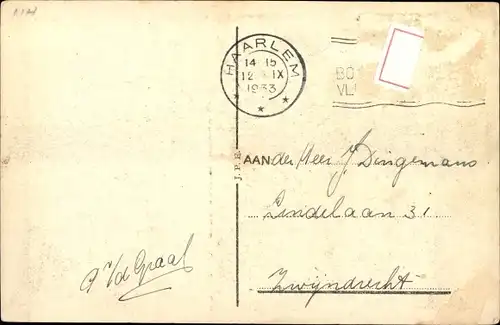 HAARLEM
14-15
12 IX
1933
BO
VL
J.P.E.
AAN der Heer J. Dingemans
Lindelaan 31
Zwijndrecht
A v/d Graal